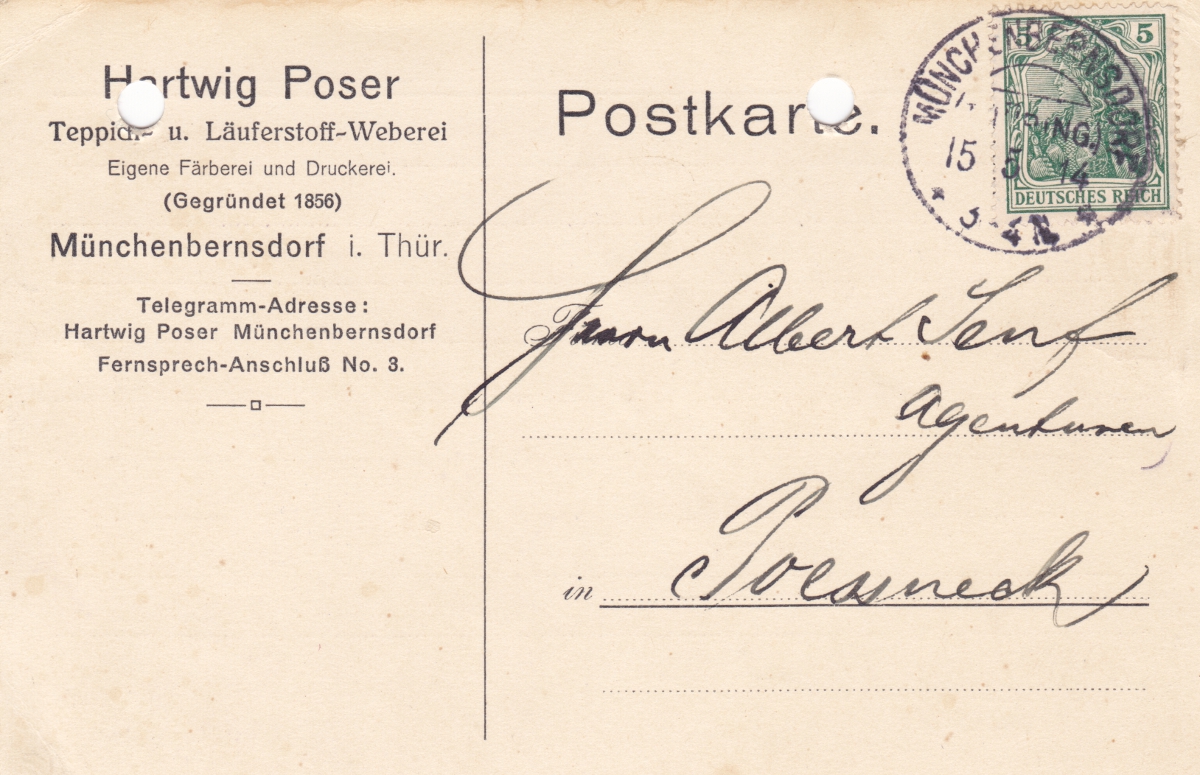 Hartwig Poser
Teppich- u. Läuferstoff-Weberei
Eigene Färberei und Druckerei.
(Gegründet 1856)
Münchenbernsdorf i. Thür.
Telegramm-Adresse:
Hartwig Poser Münchenbernsdorf
Fernsprech-Anschluß No. 3.
Postkarte.
MÜNCHENBERNSDORF
15 5 14
3-4 N
5 5
DEUTSCHES REICH
Herrn Albert Senf
Agenturen
in Poessneck